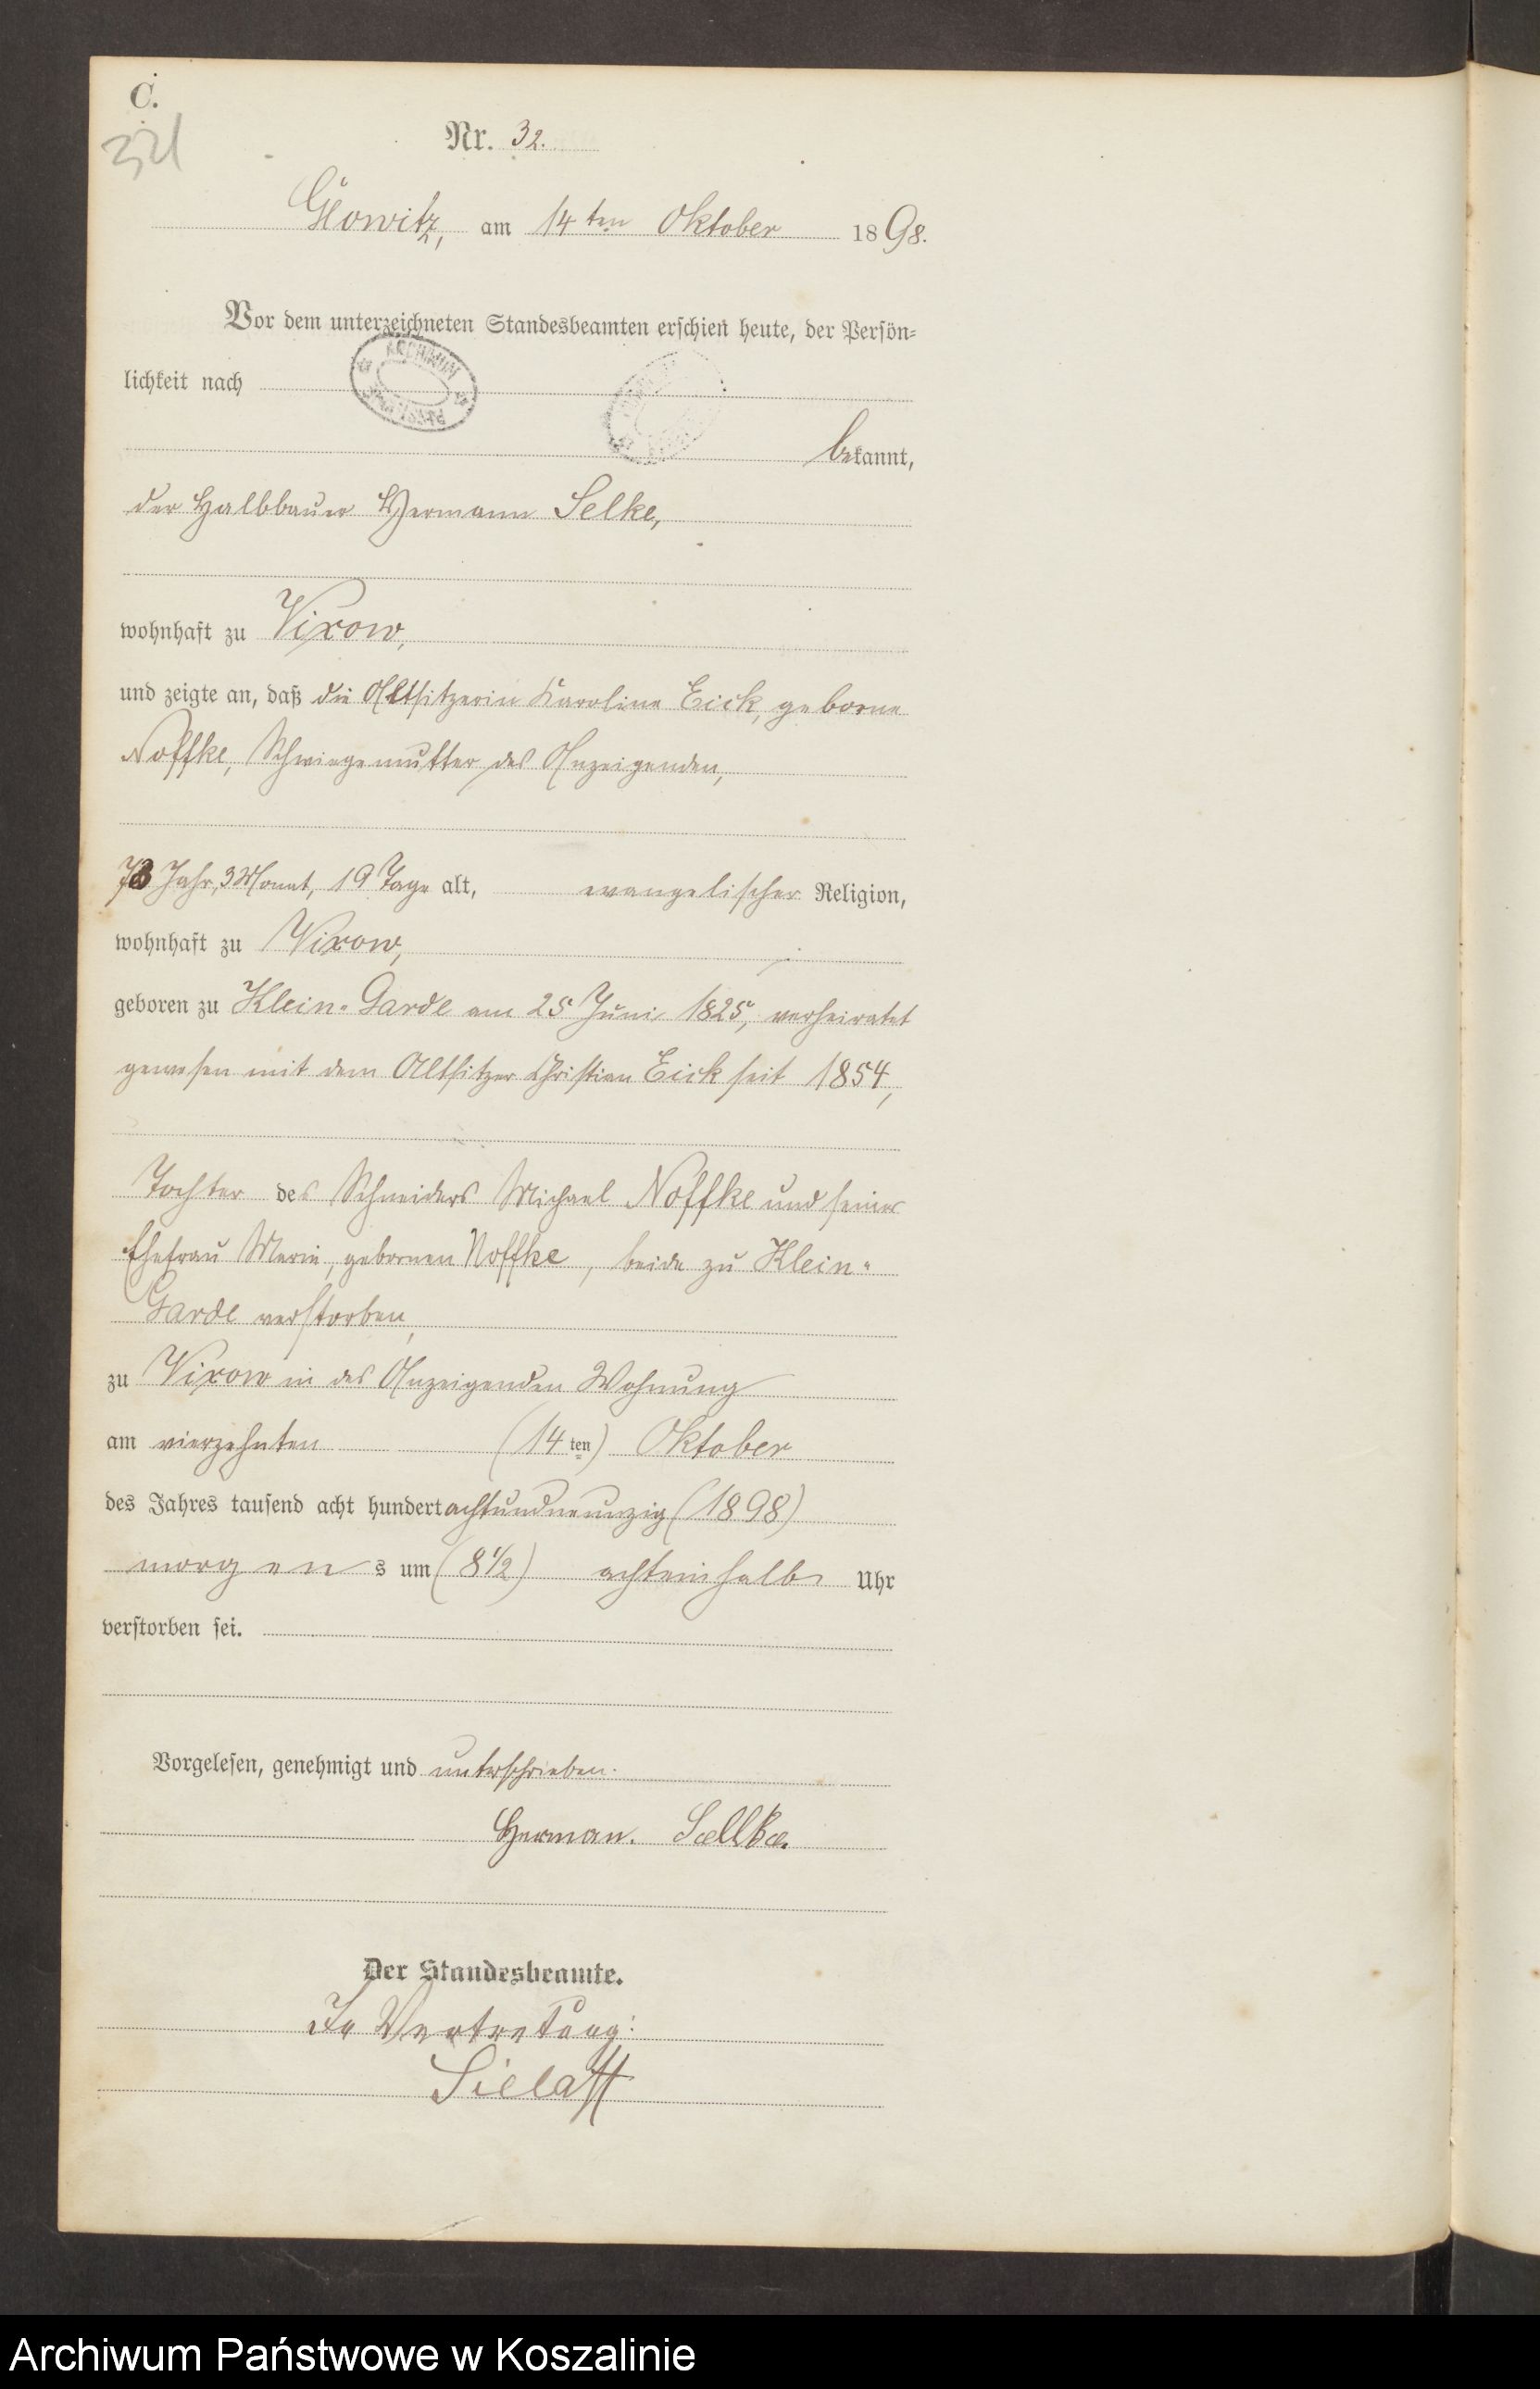 C.
32
Nr. 32.
Glowitz, am 14ten Oktober 1898.
Vor dem unterzeichneten Standesbeamten erschien heute, der Persön-
lichkeit nach
bekannt,
der Halbbauer Hermann Selke,
wohnhaft zu Vixow,
und zeigte an, daß die Altsitzerin Karoline Eick, geborne
Noffke, Schwiegemutter des Anzeigenden,
73 Jahr, 3 Monat, 19 Tage alt, evangelischer Religion,
wohnhaft zu Vixow,
geboren zu Klein-Garde am 25 Juni 1825, verheiratet
gewesen mit dem Altsitzer Christian Eick seit 1854,
Tochter des Schneiders Michael Noffke und seiner
Ehefrau Marie, gebornen Noffke, beide zu Klein-
Garde verstorben,
zu Vixow in des Anzeigenden Wohnung
am vierzehnten (14ten) Oktober
des Jahres tausend acht hundert achtundneunzig (1898)
morgens um (8 1/2) achteinhalb Uhr
verstorben sei.
Vorgelesen, genehmigt und unterschrieben.
Herman. Sellke.
Der Standesbeamte.
In Vertretung:
Sielaff
Archiwum Państwowe w Koszalinie